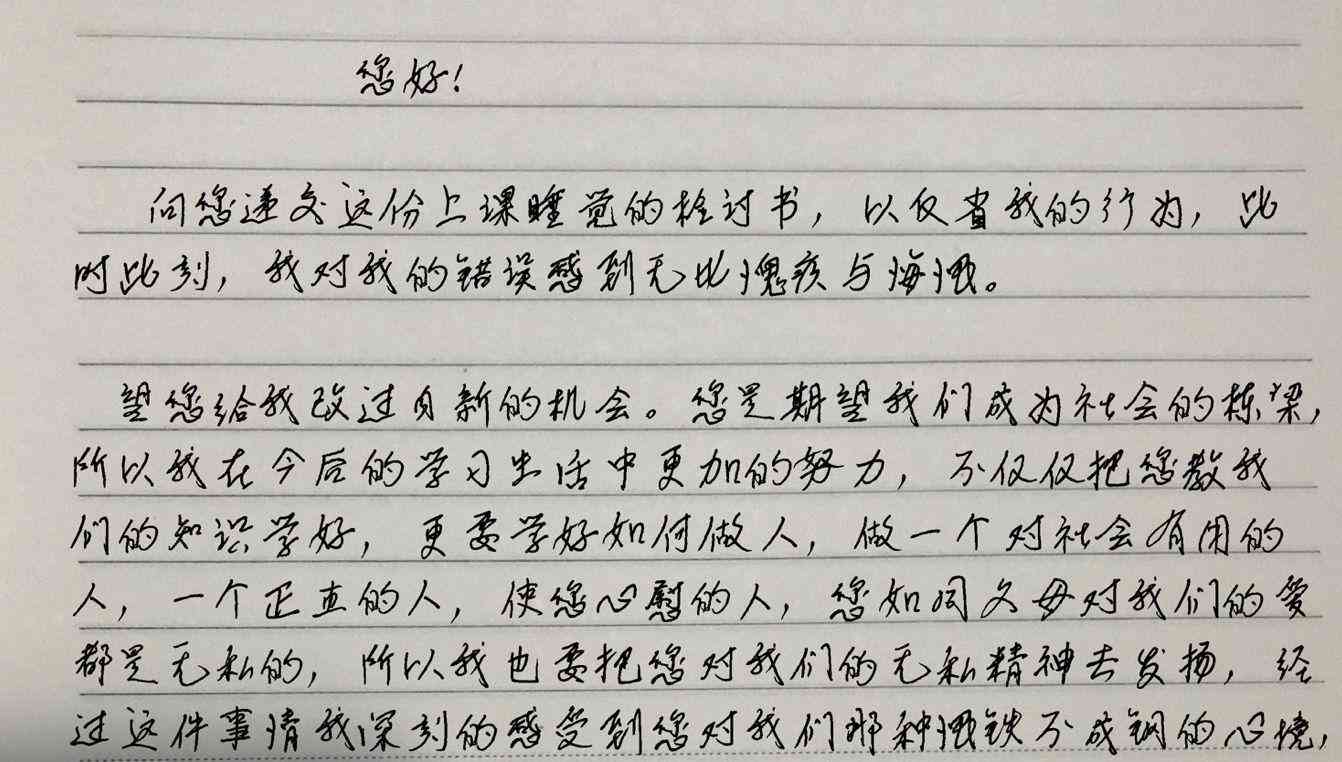 您好!
向您递交这份上课睡觉的检讨书，以反省我的行为，此
时此刻，我对我的错误感到无比愧疚与悔恨。
望您给我改过自新的机会。您是期望我们成为社会的栋梁，
所以我在今后的学习生活中更加的努力，不仅仅把您教我
们的知识学好，更要学好如何做人，做一个对社会有用的
人，一个正直的人，使您心慰的人，您如同父母对我们的爱
都是无私的，所以我也要把您对我们的无私精神去发扬，经
过这件事情我深刻的感受到您对我们那种恨铁不成钢的心境，